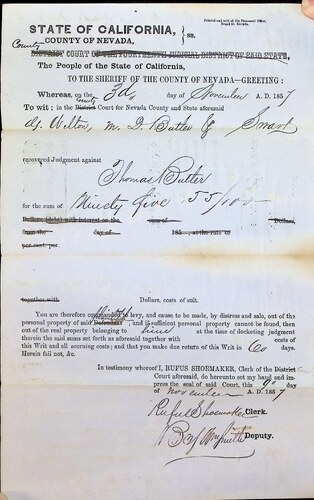 Printed and sold at the Democrat Office,
Broad St. Nevada.
STATE OF CALIFORNIA,
COUNTY OF NEVADA, } ss.
County
DISTRICT COURT OF THE FOURTEENTH JUDICIAL DISTRICT OF SAID STATE,
The People of the State of California,
TO THE SHERIFF OF THE COUNTY OF NEVADA—GREETING:
Whereas, on the 3d day of November A. D. 1857
County
To wit; in the District Court for Nevada County and State aforesaid
M. D. Butler & Smart
recovered Judgment against
Thomas Butler
for the sum of Ninety five 55/100
Dollars, (debt) with interest on the sum of Dollars,
from the day of 185 at the rate of
per cent. per.
together with Dollar, costs of suit.
You are therefore commanded to levy, and cause to be made, by distress and sale, out of the
personal property of said Defendant, and if sufficient personal property cannot be found, then
out of the real property belonging to him at the time of docketing judgment
therein the said sums set forth as aforesaid together with costs of
this Writ and all accruing costs; and that you make due return of this Writ in 60 days.
Herein fail not, &c.
In testimony whereof I, RUFUS SHOEMAKER, Clerk of the District
Court aforesaid, do hereunto set my hand and im-
press the seal of said Court, this 9th day
of November A. D. 1857
Rufus Shoemaker Clerk.
Deputy.